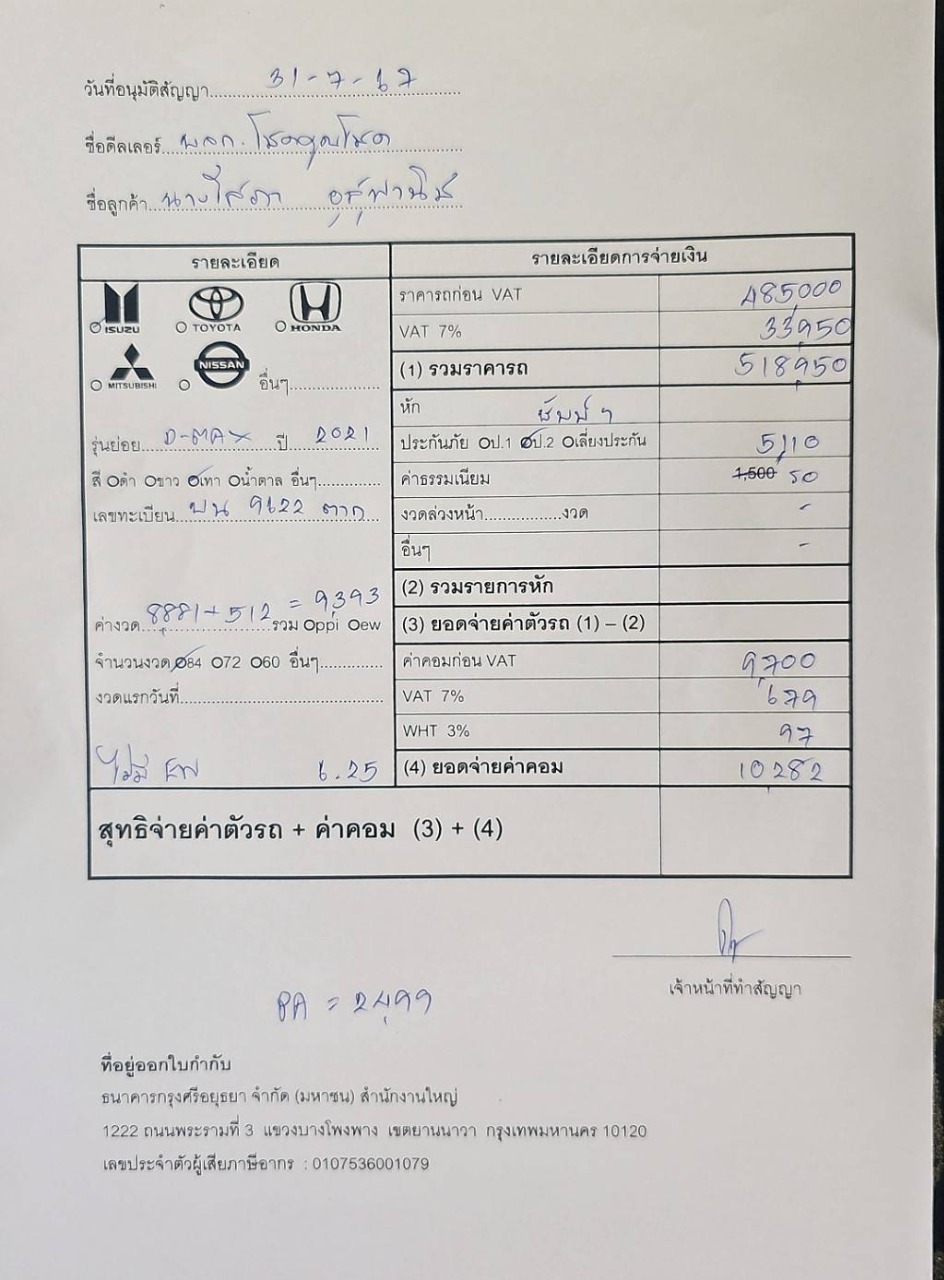 วันที่อนุมัติสัญญา 31-7-67
ชื่อดีลเลอร์ หจก. โชคคูณโชค
ชื่อลูกค้า นางโสภา
รายละเอียด
ISUZU TOYOTA HONDA
MITSUBISHI NISSAN อื่นๆ
รุ่นย่อย D-MAX ปี 2021
สี ดำ ขาว เทา น้ำตาล อื่นๆ
เลขทะเบียน บน 9622 ตาก
ค่างวด 8881+512 = 9,393 รวม ppi ew
จำนวนงวด 84 72 60 อื่นๆ
งวดแรกวันที่
ไม่มี EW 6.25
รายละเอียดการจ่ายเงิน
ราคารถก่อน VAT 485,000
VAT 7% 33,950
(1) รวมราคารถ 518,950
หัก
ประกันภัย ป.1 ป.2 เลี่ยงประกัน 5,110
ค่าธรรมเนียม 1,500 50
งวดล่วงหน้า งวด -
อื่นๆ -
(2) รวมรายการหัก
(3) ยอดจ่ายค่าตัวรถ (1) – (2)
ค่าคอมก่อน VAT 9,700
VAT 7% 679
WHT 3% 97
(4) ยอดจ่ายค่าคอม 10,282
สุทธิจ่ายค่าตัวรถ + ค่าคอม (3) + (4)
เจ้าหน้าที่ทำสัญญา
PA = 2,499
ที่อยู่ออกใบกำกับ
ธนาคารกรุงศรีอยุธยา จำกัด (มหาชน) สำนักงานใหญ่
1222 ถนนพระรามที่ 3 แขวงบางโพงพาง เขตยานนาวา กรุงเทพมหานคร 10120
เลขประจำตัวผู้เสียภาษีอากร : 0107536001079